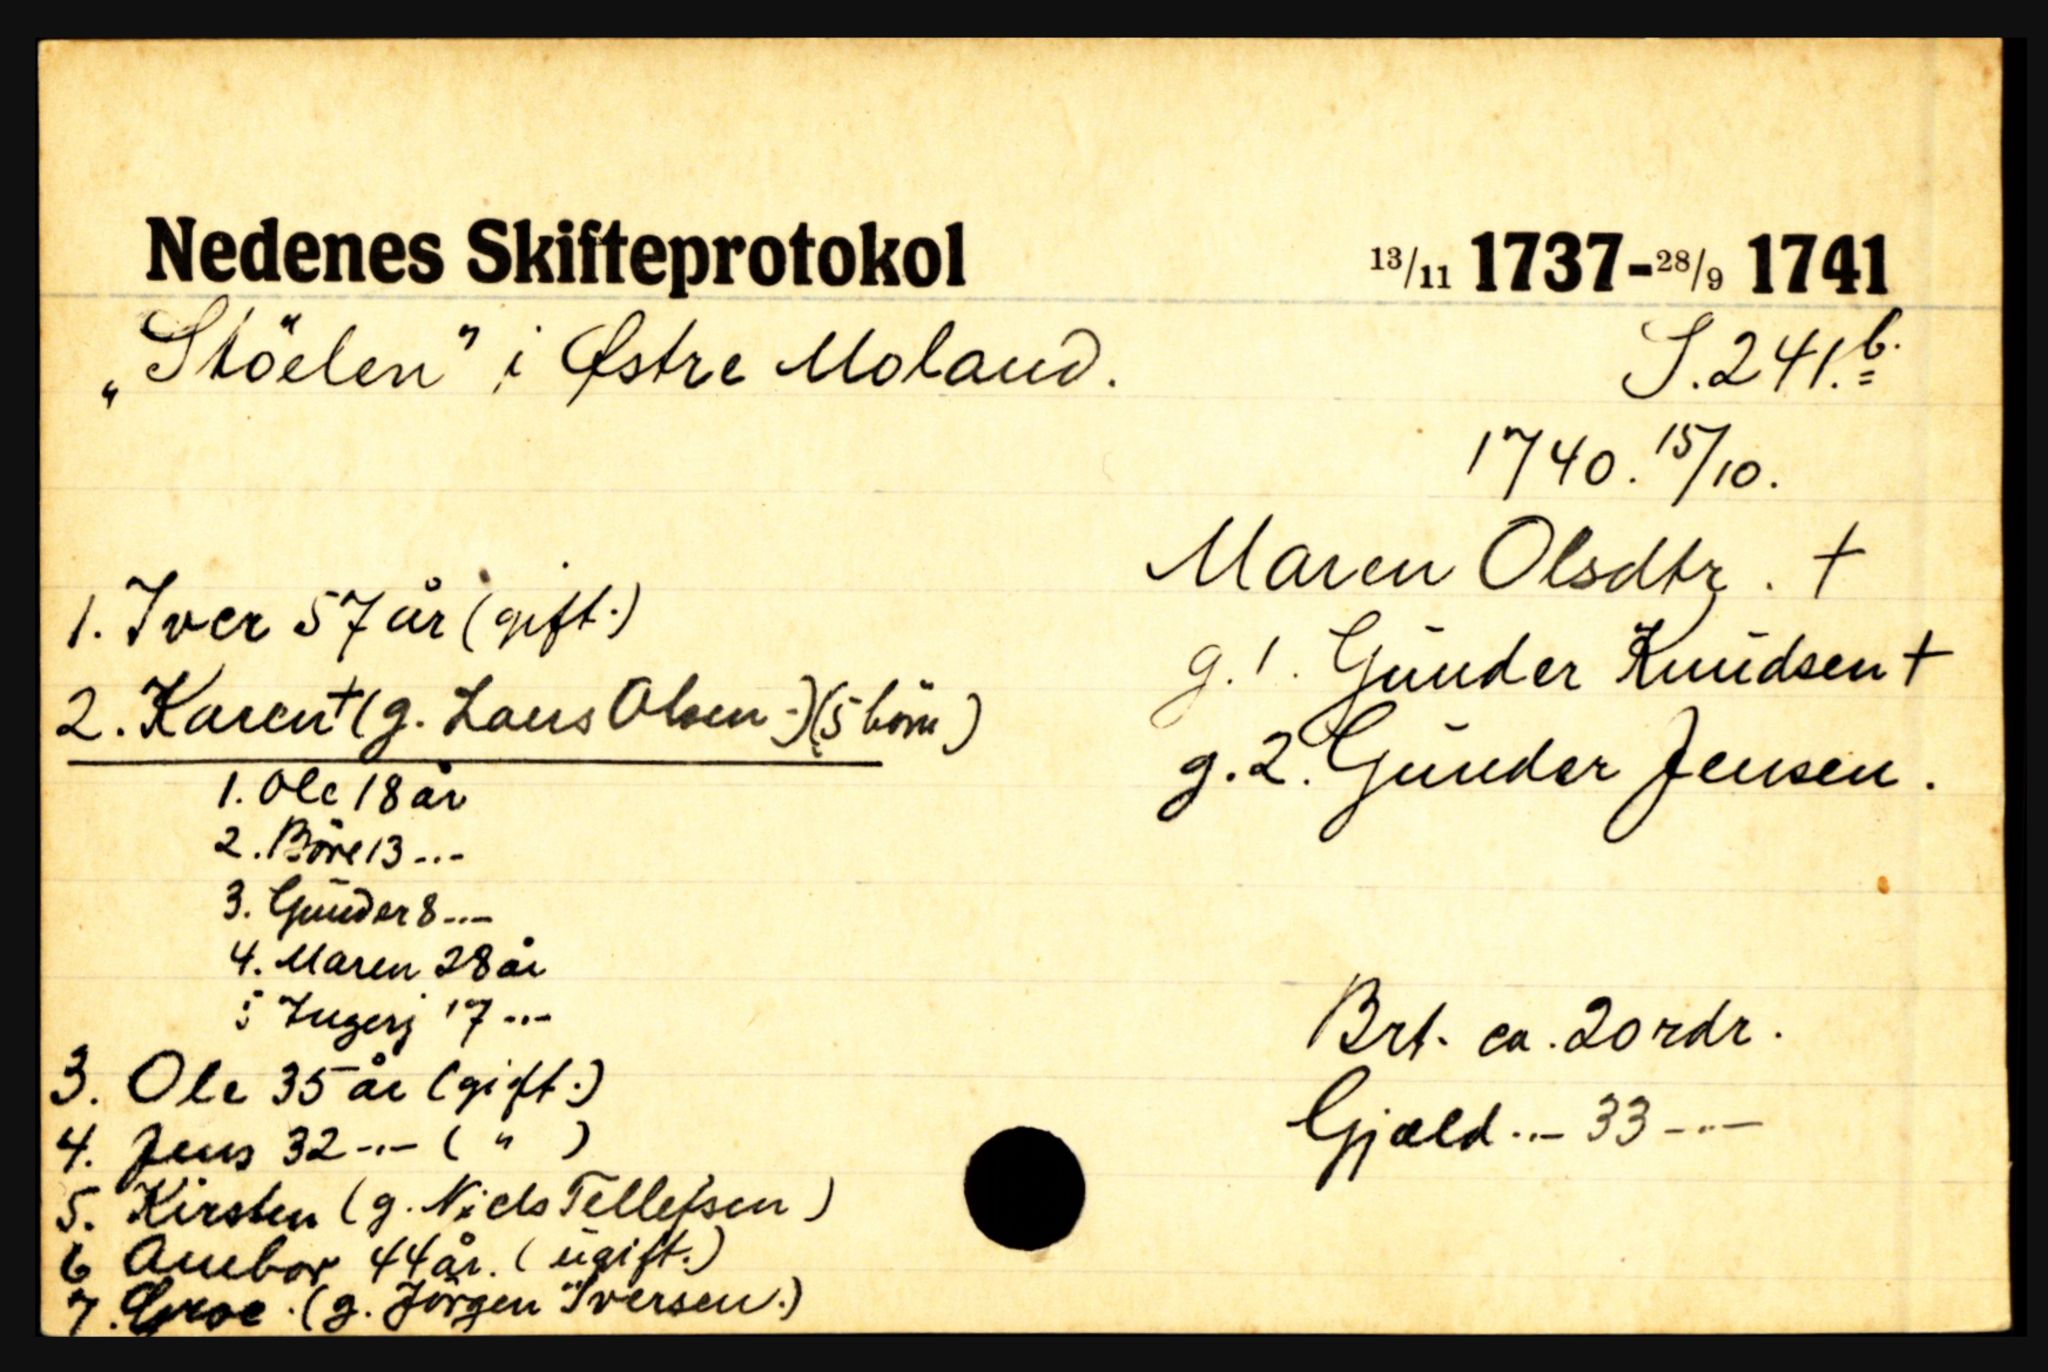 Nedenes Skifteprotokol 13/11 1737-28/9 1741
„Stöelen" i Østre Moland. S. 241.b.
1740. 15/10.
Maren Olsdtr. †
g. 1. Gunder Knudsen †
g. 2. Gunder Jensen.
1. Iver 57 år (gift.)
2. Karen † (g. Lars Olsen -) (5 börn)
1. Ole 18 år
2. Böre 13 -..-
3. Gunder 8 -..-
4. Maren 28 år
5 Ingerj 17 -..-
3. Ole 35 år (gift.)
4. Jens 32 -..- ( " )
5. Kirsten (g. Niels Tellefsen)
6 Anebor 44 år. (ugift.)
7. Groe. (g. Jörgen Iversen.)
Brt. ca. 20 rdr.
Gjæld -..- 33 -..-